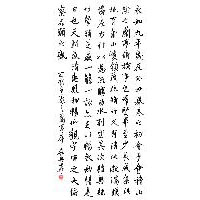 永和九年歲在癸丑暮春之初會于會稽山
陰之蘭亭脩禊事也羣賢畢至少長咸集此
地有崇山峻領茂林脩竹又有清流激湍映
帶左右引以為流觴曲水列坐其次雖無絲
竹管弦之盛一觴一詠亦足以暢敘幽情是
日也天朗氣清惠風和暢仰觀宇宙之大俯
察品類之盛